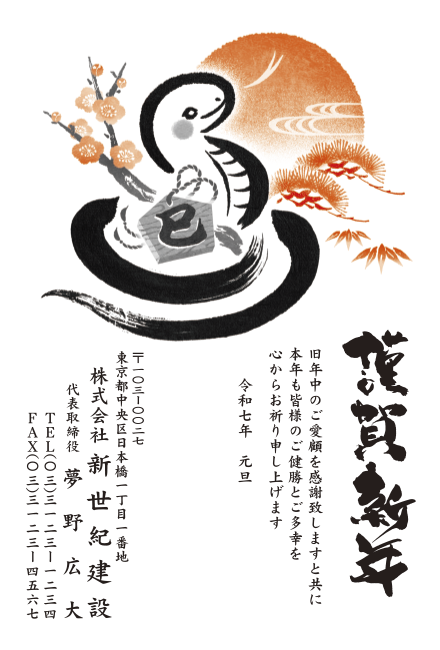 謹賀新年
旧年中のご愛顧を感謝致しますと共に
本年も皆様のご健勝とご多幸を
心からお祈り申し上げます
令和七年 元旦
巳
〒一〇三-〇〇二七
東京都中央区日本橋一丁目一番地
株式会社 新世紀建設
代表取締役 夢野広大
TEL(〇三)三一二三-一二三四
FAX(〇三)三一二三-四五六七